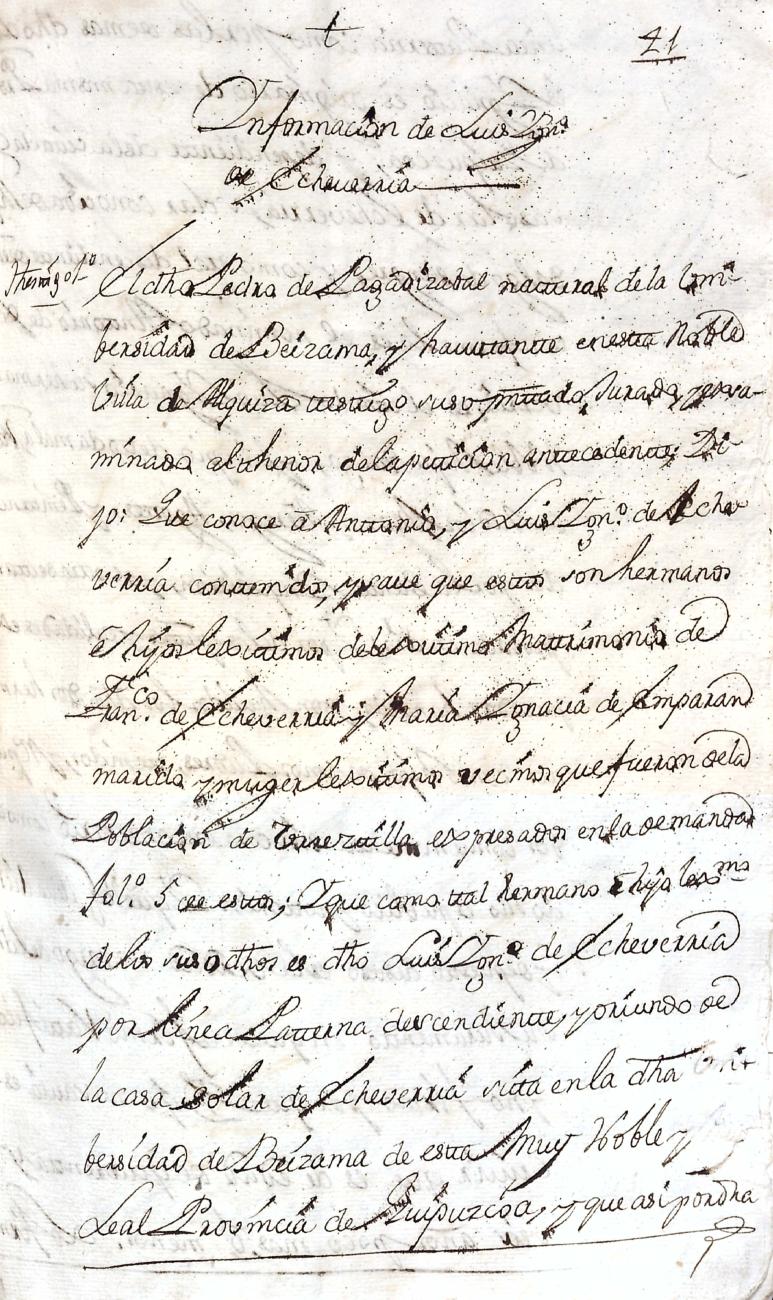 t
41
Informacion de Luis Ygn.º
de Echeverria
Testigo 1.º El dho Pedro de Lagadizabal natural de la Vni-
bersidad de Beizama, y havittantte en estta Noble
Villa de Alquiza ttesttigo suso presenttado, Jurado, y exsa-
minado al thenor de la peticion anttecedentte: Di-
jo: Que conoce â Anttonio, y Luis Ygn.º de Eche-
verria conttenidos, y save que esttos son hermanos
ê hijos lexitimos de lexitimo Mattrimonio de
Fran.co de Echeverria y Maria Ygnacia de Emparan
marido y muger lexitimos vecinos que fueron de la
Poblacion de Urrezttilla expresados en la demanda
fol.º 5 de esttos; Y que como ttal hermano ê hijo lexmo
de los suso dhos es dho Luis Ygn.º de Echeverria
por linea Patterna descendientte, y oriundo de
la casa solar de Echeverria sitta en la dha Vni-
bersidad de Beizama de estta Muy Noble y
Leal Provincia de Guipuzcoa, y que asi por dha